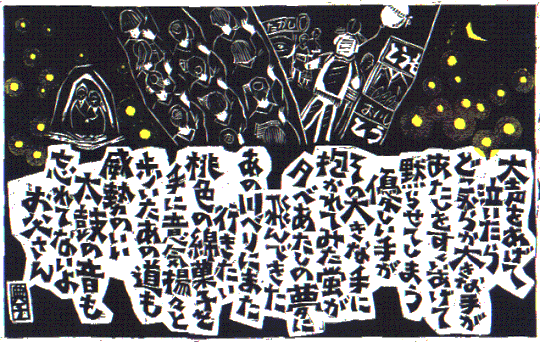 大声をあげて
泣いたら
どこからか大きな手が
あたしをすくいあげて
黙らせてしまう
優しい手が
その大きな手に
抱かれてみた蛍が
夕べあたしの夢に
飛んできた
あの川べりにまた
行きたい
桃色の綿菓子を
手に意気揚々と
歩いたあの道も
威勢のいい
太鼓の音も
忘れてないよ
お父さん